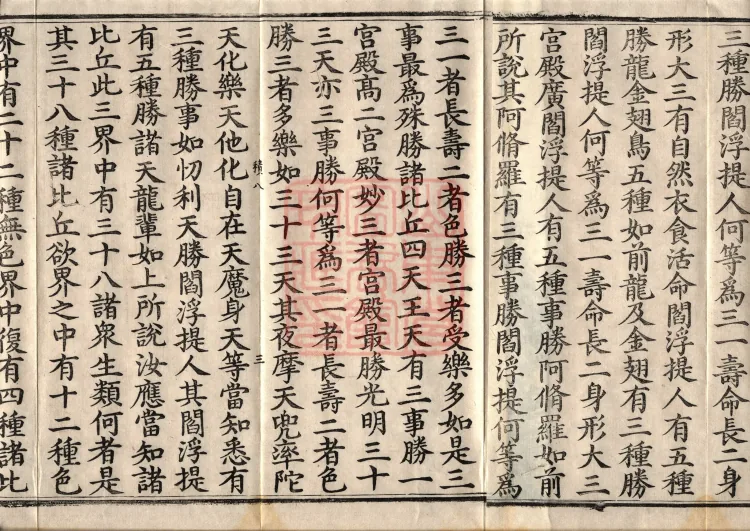 三種勝閻浮提人何等爲三一壽命長二身
形大三有自然衣食活命閻浮提人有五種
勝龍金翅鳥五種如前龍及金翅有三種勝
閻浮提人何等爲三一壽命長二身形大三
宮殿廣閻浮提人有五種事勝阿脩羅如前
所說其阿脩羅有三種事勝閻浮提何等爲
三一者長壽二者色勝三者受樂多如是三
事最爲殊勝諸比丘四天王天有三事勝一
宮殿高二宮殿妙三者宮殿最勝光明三十
三天亦三事勝何等爲三一者長壽二者色
勝三者多樂如三十三天其夜摩天兜率陀
積八 三
天化樂天他化自在天魔身天等當知悉有
三種勝事如忉利天勝閻浮提人其閻浮提
有五種勝諸天龍輩如上所說汝應當知諸
比丘此三界中有三十八諸衆生類何者是
其三十八種諸比丘欲界之中有十二種色
界中有二十二種無色界中復有四種諸比